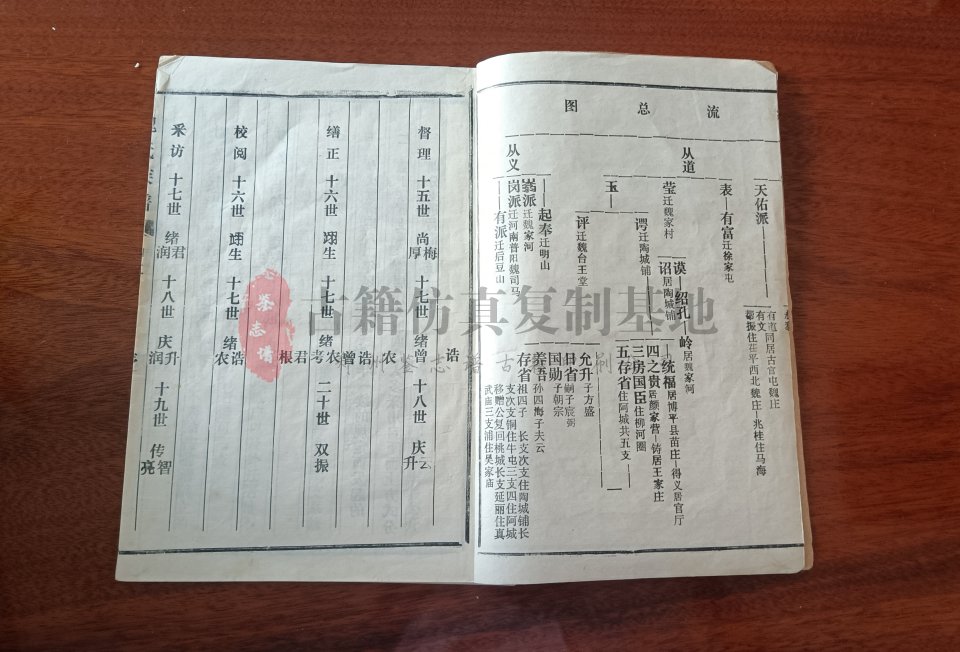 流总图
天佑派
表—有富迁徐家屯
从道
莹迁魏家村
谔迁陶城铺
谟
诏居陶城铺
绍孔
岭居魏家河
玉
评迁魏台王堂
从义
起奉迁明山
派迁魏家河
岗派迁河南普阳魏司马
有派迁后豆山
同居古官屯魏庄
有文
振住茌平西北魏庄—兆桂住马海
统福居博平县苗庄—得义居官厅
四之贵居颜家营—铸居王家庄
三房国臣住柳河圈
五存省住阿城共五支
允升子方盛
日省嗣子宸弼
国勋子朝宗
善吾孙四海子夫云
存省祖四子 长支次支住陶城铺长
支次支铜住牛屯三支四住阿城
移赠公复回桃城长支延丽住真
武庙三支浦住吴家庙
督理 十五世 尚梅厚 十七世 绪曾 诰农 十八世 庆升云
缮正 十六世 翊生 十七世 绪考 诰曾君根 二十世 双振
校阅 十六世 翊生 十七世 绪诰农
采访 十七世 绪君润 十八世 庆升润 十九世 传智亮
鉴志谱
古籍仿真复制基地